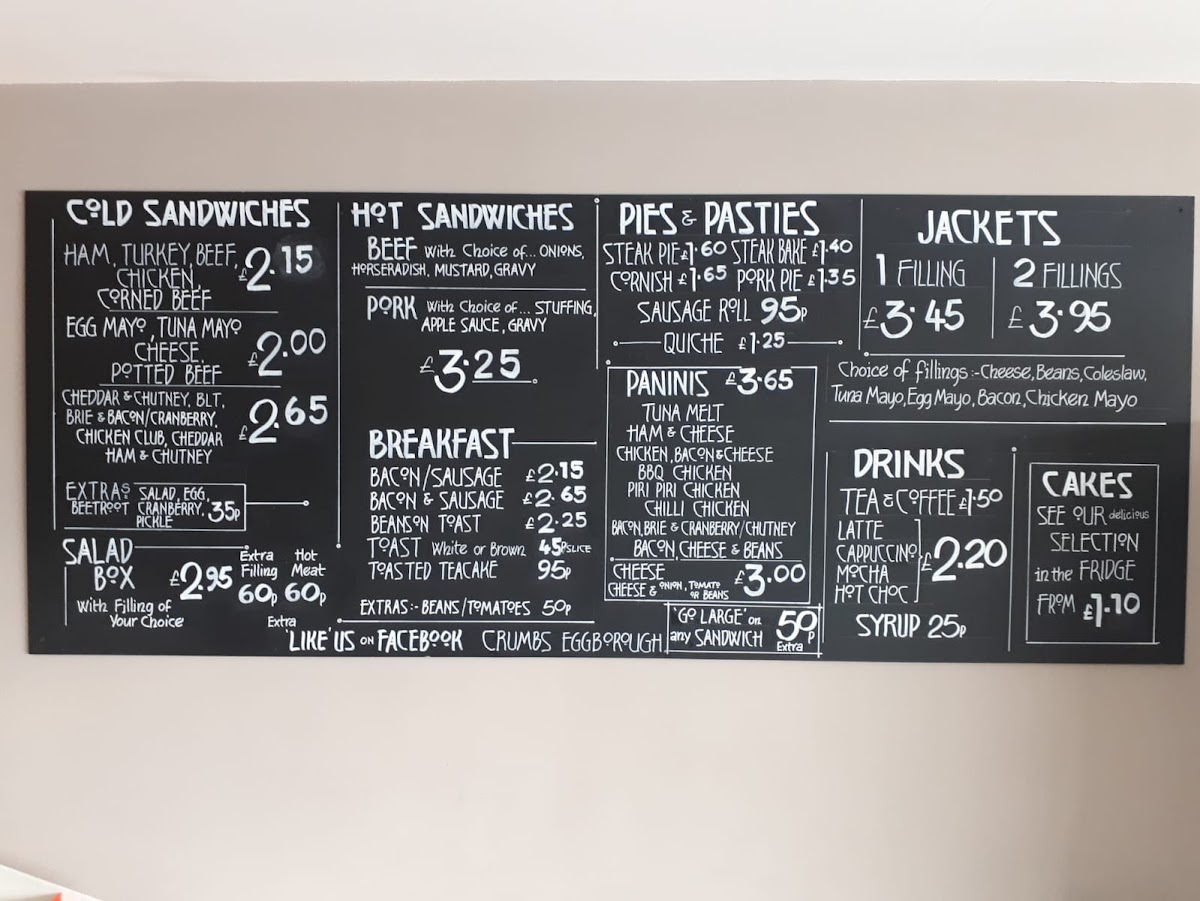 COLD SANDWICHES
HAM, TURKEY, BEEF, £2.15
CHICKEN,
CORNED BEEF
EGG MAYO, TUNA MAYO £2.00
CHEESE
POTTED BEEF
CHEDDAR & CHUTNEY, BLT, £2.65
BRIE & BACON/CRANBERRY,
CHICKEN CLUB, CHEDDAR
HAM & CHUTNEY
EXTRAS SALAD, EGG, 35p
BEETROOT CRANBERRY,
PICKLE
SALAD BOX £2.95
With Filling of
Your Choice
Extra Filling 60p
Hot Meat 60p
Extra
HOT SANDWICHES
BEEF With Choice of... ONIONS,
HORSERADISH, MUSTARD, GRAVY
PORK With Choice of... STUFFING,
APPLE SAUCE, GRAVY
£3.25
BREAKFAST
BACON/SAUSAGE £2.15
BACON & SAUSAGE £2.65
BEANS ON TOAST £2.25
TOAST White or Brown 45P SLICE
TOASTED TEACAKE 95p
EXTRAS:- BEANS/TOMATOES 50p
PIES & PASTIES
STEAK PIE £1.60 STEAK BAKE £1.40
CORNISH £1.65 PORK PIE £1.35
SAUSAGE ROLL 95p
QUICHE £1.25
PANINIS £3.65
TUNA MELT
HAM & CHEESE
CHICKEN, BACON & CHEESE
BBQ CHICKEN
PIRI PIRI CHICKEN
CHILLI CHICKEN
BACON, BRIE & CRANBERRY/CHUTNEY
BACON, CHEESE & BEANS
CHEESE £3.00
CHEESE & ONION, TOMATO
OR BEANS
'GO LARGE' on
any SANDWICH 50p
Extra
JACKETS
1 FILLING
£3.45
2 FILLINGS
£3.95
Choice of fillings:- Cheese, Beans, Coleslaw,
Tuna Mayo, Egg Mayo, Bacon, Chicken Mayo
DRINKS
TEA & COFFEE £1.50
LATTE
CAPPUCCINO £2.20
MOCHA
HOT CHOC
SYRUP 25p
CAKES
SEE OUR delicious
SELECTION
in the FRIDGE
FROM £1.10
'LIKE' US ON FACEBOOK CRUMBS EGGBOROUGH